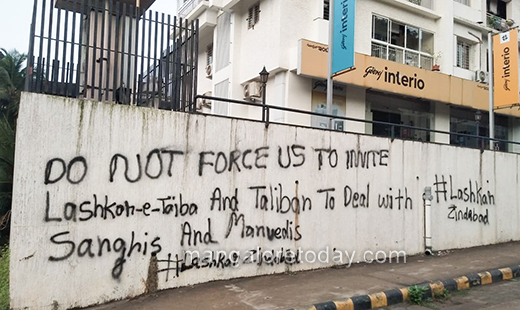 Godrej interio
interio
DO NOT FORCE US TO INVITE
Lashkar-e-Taiba And Taliban To Deal with
Sanghis And Manvedis
#Lashkar
Zindabad
mangaloretoday.com